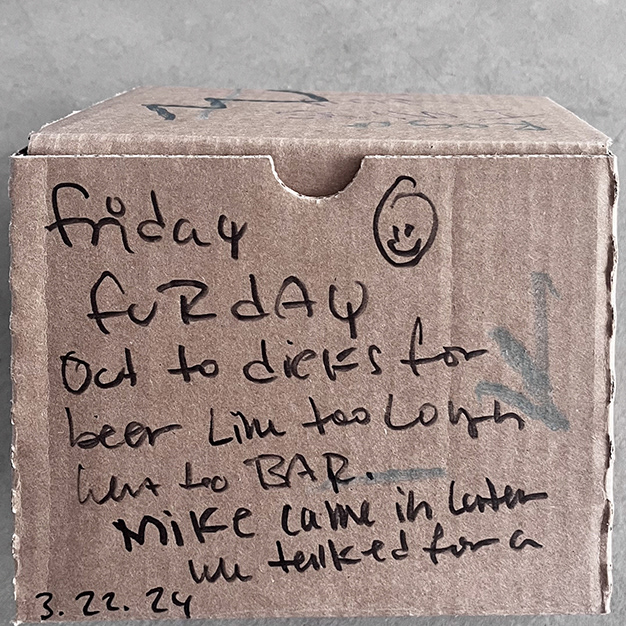 friday
fuRdAy
Out to dicks for
beer Line too Long
went to BAR.
Mike came in later
we talked for a
3.22.24